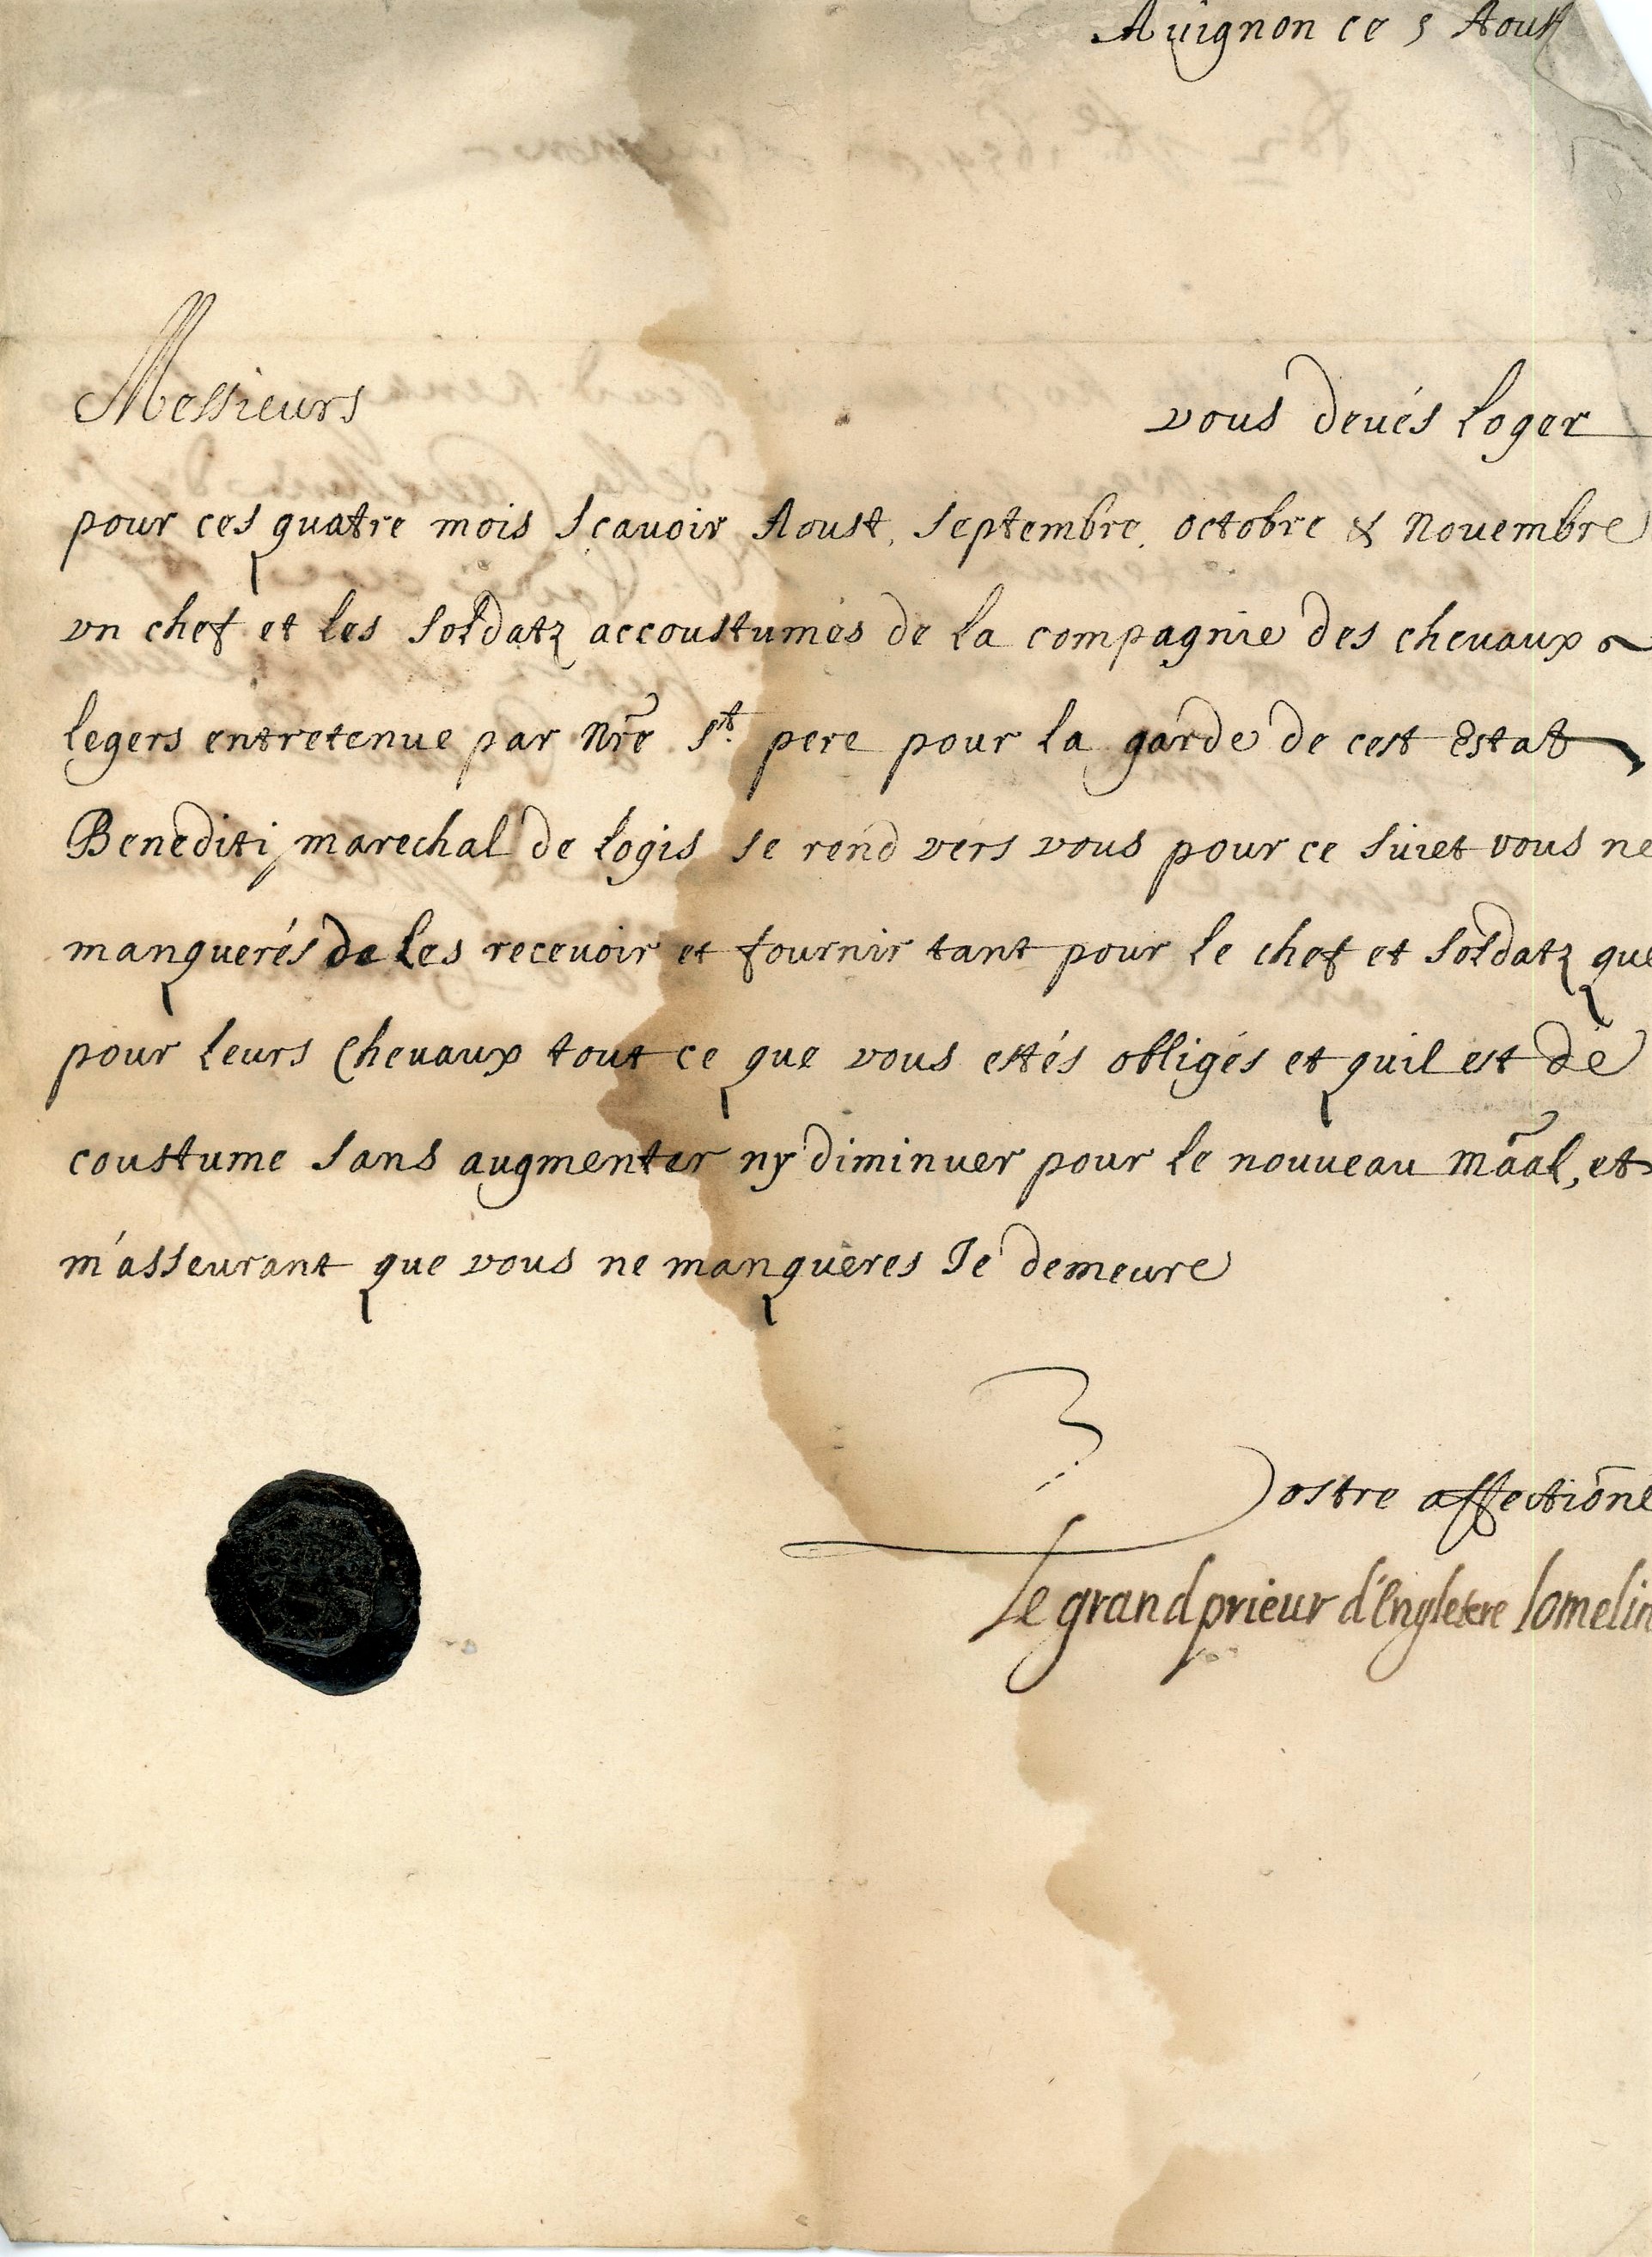 Auignon ce 5 Aoust
Messieurs vous deués loger
pour ces quatre mois Scauoir Aoust, Septembre, octobre & Nouembre
vn chef et les Soldatz accoustumés de la compagnie des cheuaux
legers entretenue par Nre St. pere pour la garde de cest Estat
Benediti, marechal de logis se rend vers vous pour ce suiet vous ne
manquerés de les receuoir et fournir tant pour le chef et Soldatz que
pour leurs Cheuaux tout ce que vous estés obligés et quil est de
coustume Sans augmenter ny diminuer pour le nouueau Māal, et
m'asseurant que vous ne manqueres Je demeure
Vostre affectiōné
Le grand prieur d'Engletere lomelin